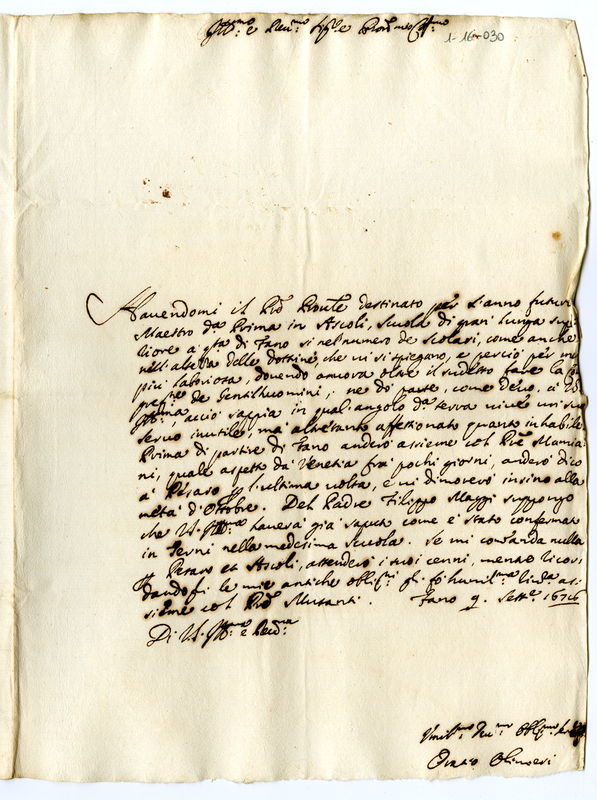 Ill.mo e Rev.mo Sig.re e Pron mio Col.mo
1-16-030
Havendomi il Prē Prov.le destinato per l'anno futuro
Maestro dª Prima in Ascoli, scuola di gran lunga supe-
riore a qta di Fano si nel numero de scolari, come anche
nell'altezza delle dottrine, che ivi si spiegano, e perciò per me
più laboriosa, dovendo ancora oltre il sudetto fare la
de Gentilhuomini; ne dò parte, come devo, a V.S.
Ill.ma, acciò sappia in qual angolo dª terra vive un suo
servo inutile, ma altretanto affettionato quanto inhabile
Prima di partire di Fano anderò assieme col Prē Mamia-
ni, quale aspetto da Venetia frà pochi giorni, anderò dico
a Pesaro p l'ultima volta, e vi dimorerò insino alla
metà d'Ottobre. Del Padre Filippo Maggi suppongo
che V.S. Ill.ma haverà già saputo come è stato confermato
in Terni nella medesima scuola. Se mi comanda nulla
p Pesaro et Ascoli, attenderò i suoi cenni, mentre ricor-
dandosi le mie antiche oblig.ni gli fò humil.ma riv.za as-
sieme col Prē Mutanti. Fano 9. Sett.e 1676
Di V.S. Ill.ma e Rev.ma
Umil.mo Oblig.mo
Oratio Olivieri